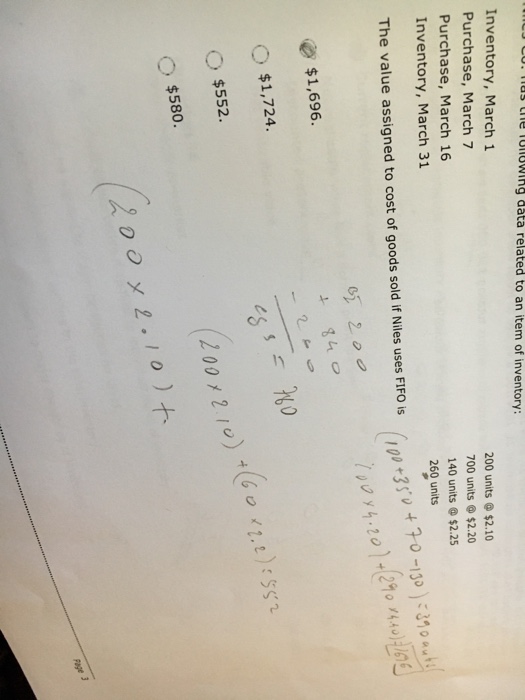 following data related to an item of inventory:
Inventory, March 1 200 units @ $2.10
Purchase, March 7 700 units @ $2.20
Purchase, March 16 140 units @ $2.25
Inventory, March 31 260 units
The value assigned to cost of goods sold if Niles uses FIFO is
(100+350+70-130)=390 units
100x4.20)+(290x4.40)=1696
$1,696.
$1,724.
$552.
$580.
BI 200
+ 840
- 260
= 780
(200x2.10)+(60x2.2)=552
(200x2.10)+
Page 3